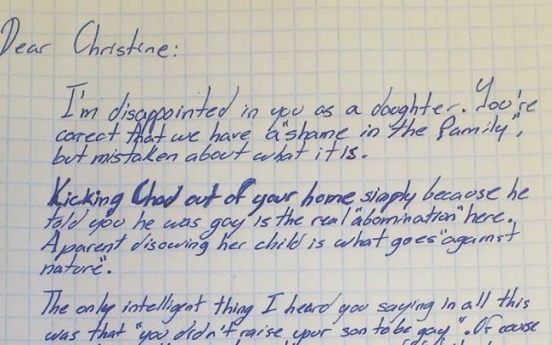 Dear Christine:
I'm disappointed in you as a daughter. You're
corect that we have a "shame in the family",
but mistaken about what it is.
Kicking Chad out of your home simply because he
told you he was gay is the real "abomination" here.
A parent disowing her child is what goes "against
nature".
The only intelligent thing I heard you saying in all this
was that "you didn't raise your son to be gay". Of couse